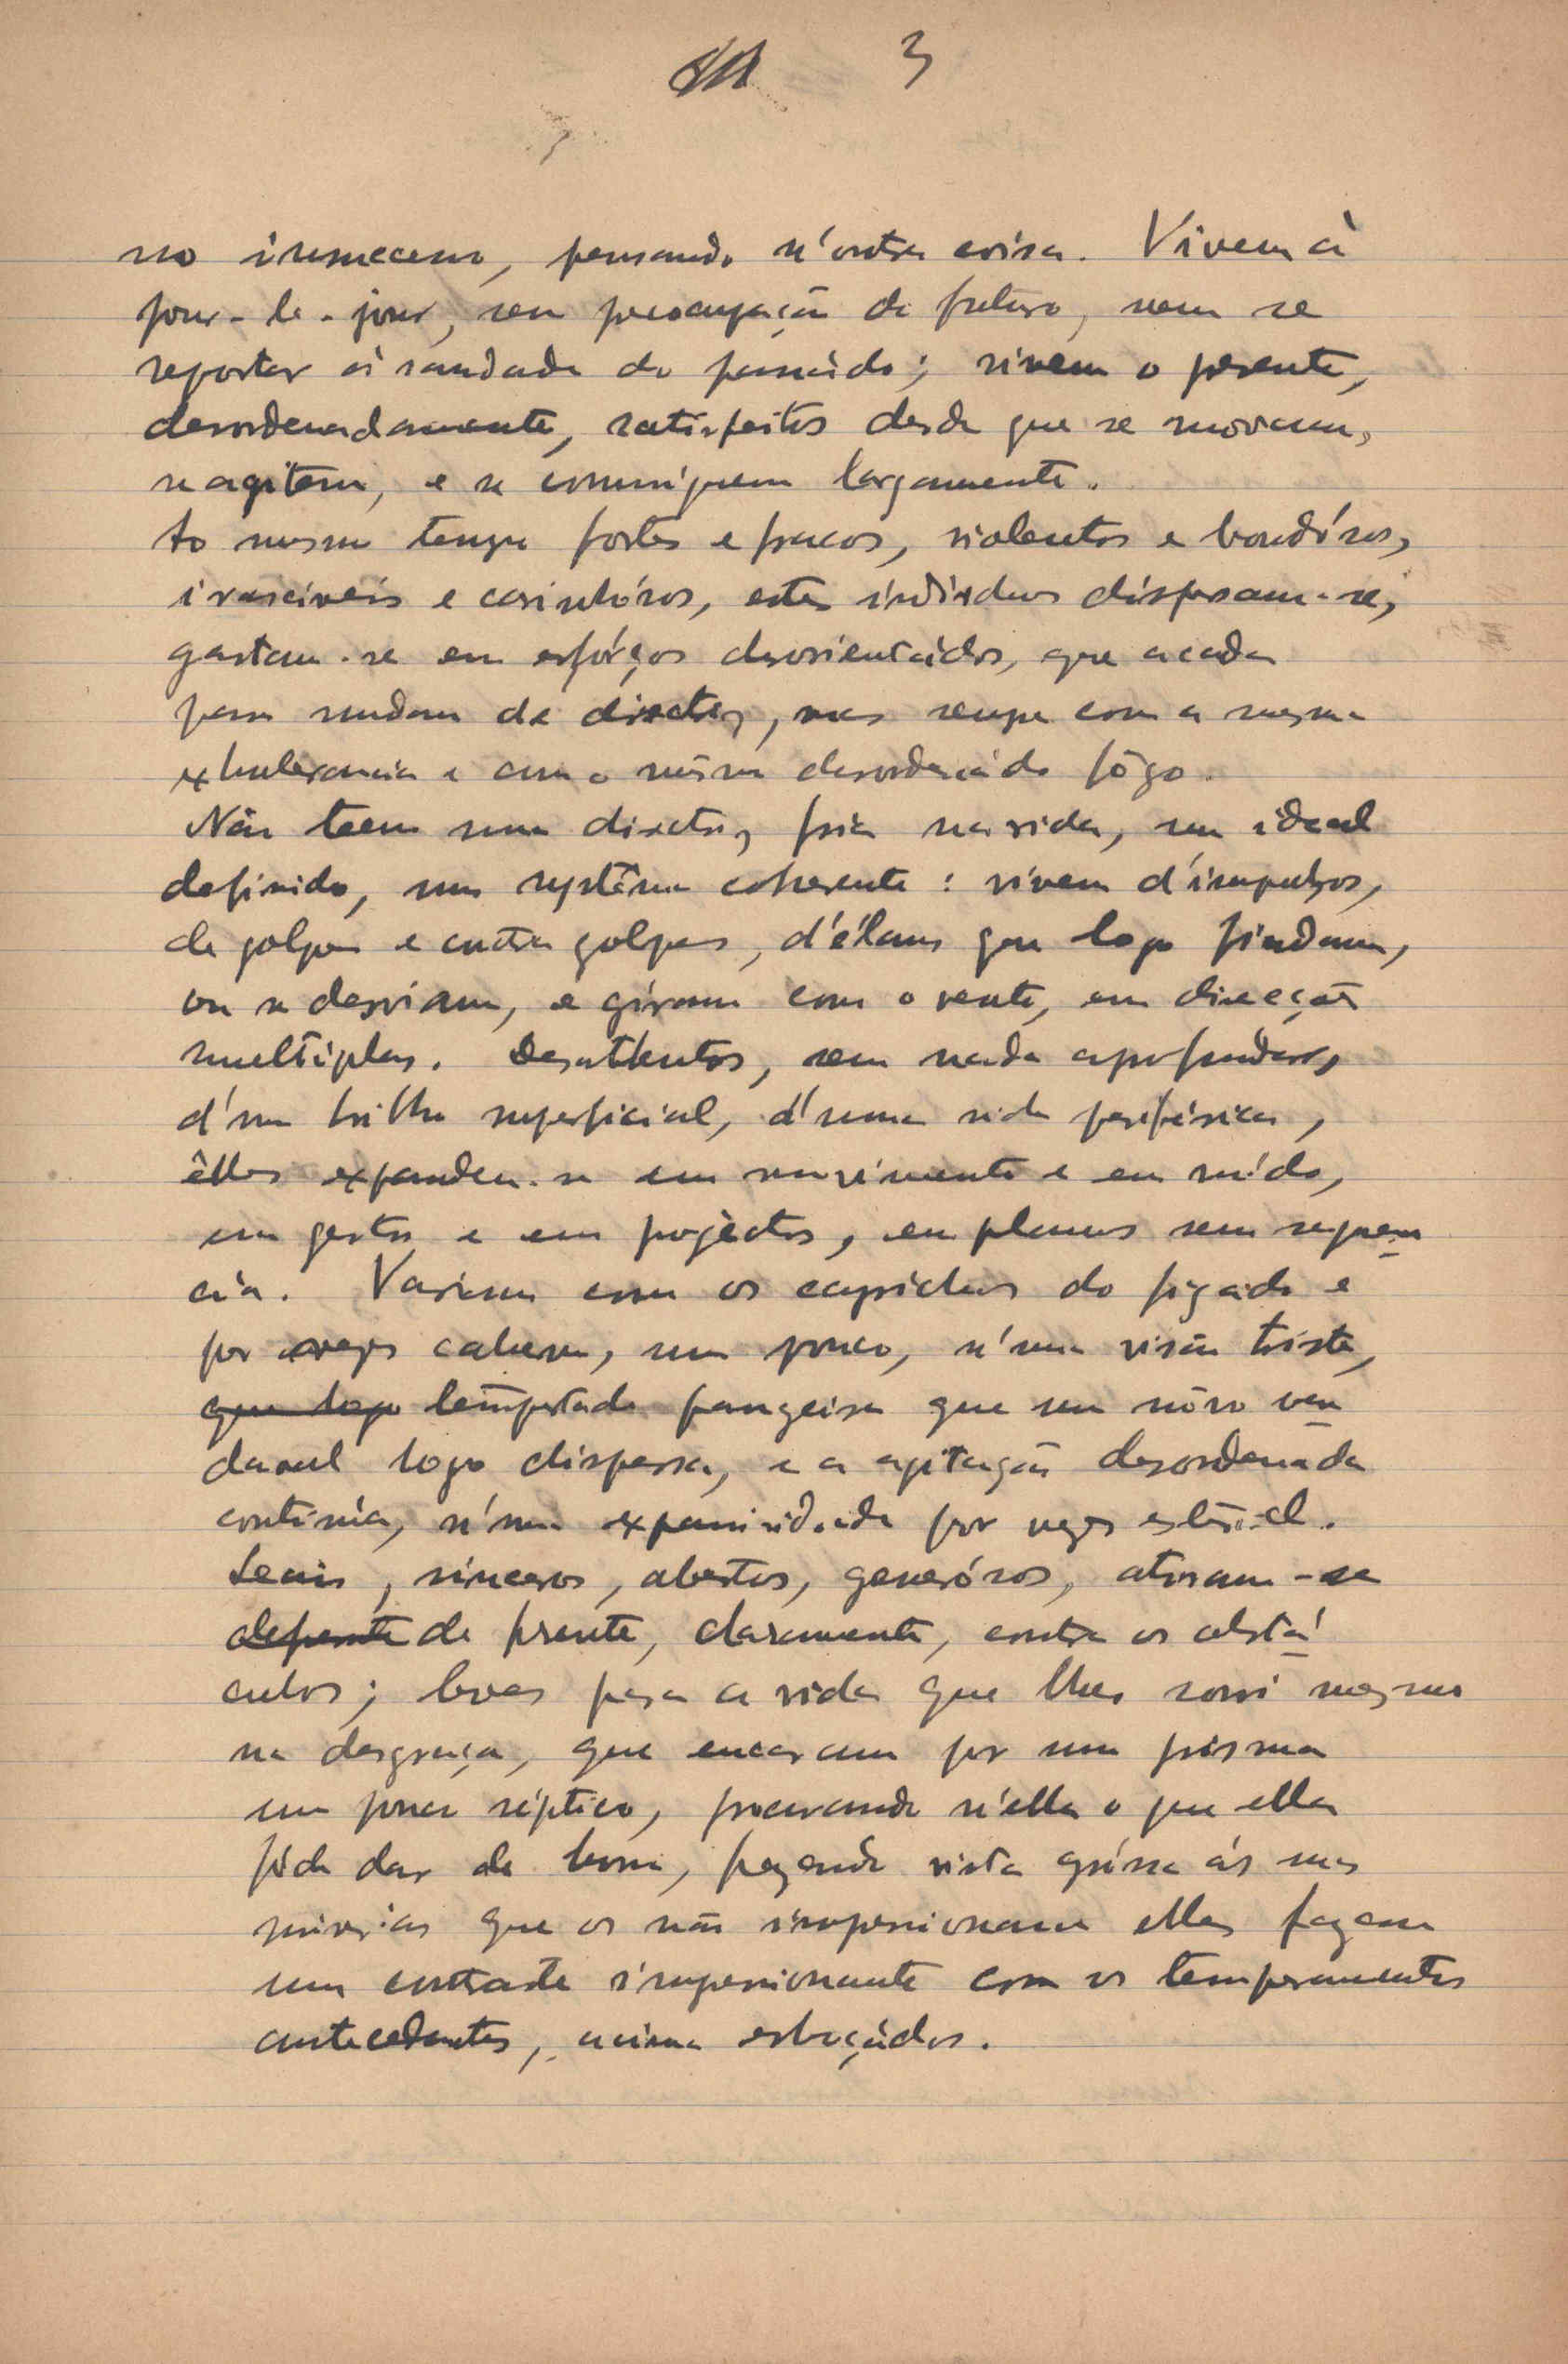 3
no iremecem, pensando n'outra coisa. Vivem à
jour-le-jour, sem preocupação do futuro, nem se
reportar á saudade do passádo; vivem o presente,
desordenadamente, satisfeitos desde que se movam,
se agitem, e se comuniquem largamente.
Ao mesmo tempo fortes e fracos, violentos e bondósos,
irascíveis e carinhósos, estes individuos dispersam-se,
gastam-se em esfórços desorientádos, que a cada
passo mudam de directriz, mas sempre com a mesma
exhuberancia e com o mêsmo desordenádo fôgo.
Não teem uma directriz fria na vida, um ideal
definido, um systêma coherente: vivem d'impulsos,
de golpes e contra golpes, d'élans que logo findam,
ou se desviam, e giram com o vento, em direcções
multiplas. Desattentos, sem nada aprofundar,
d'um brilho superficial, d'uma vida periférica,
êlles expandem-se em movimento e em ruído,
em gestos e em projéctos, em planos sem sequen
cia. Variam com os caprichos do figado e
por vezes cahem, um pouco, n'uma visão triste,
que logo tempestade passageira que um nôvo ven
daval logo dispersa, e a agitação desordenada
continúa, n'uma expansividade por vezes estéril.
Leais, sinceros, abertos, generósos, atiram-se
de frente, claramente, contra os obstá
culos; boas para a vida que lhes sorri mesmo
na desgraça, que encaram por um prisma
um pouco séptico, procurando n'ella o que ella
póde dar de bom, fazendo vista gróssa ás suas
miserias que os não impressionam elles fazem
um contraste impressionante com os temperamentos
antecedentes, acima esboçádos.